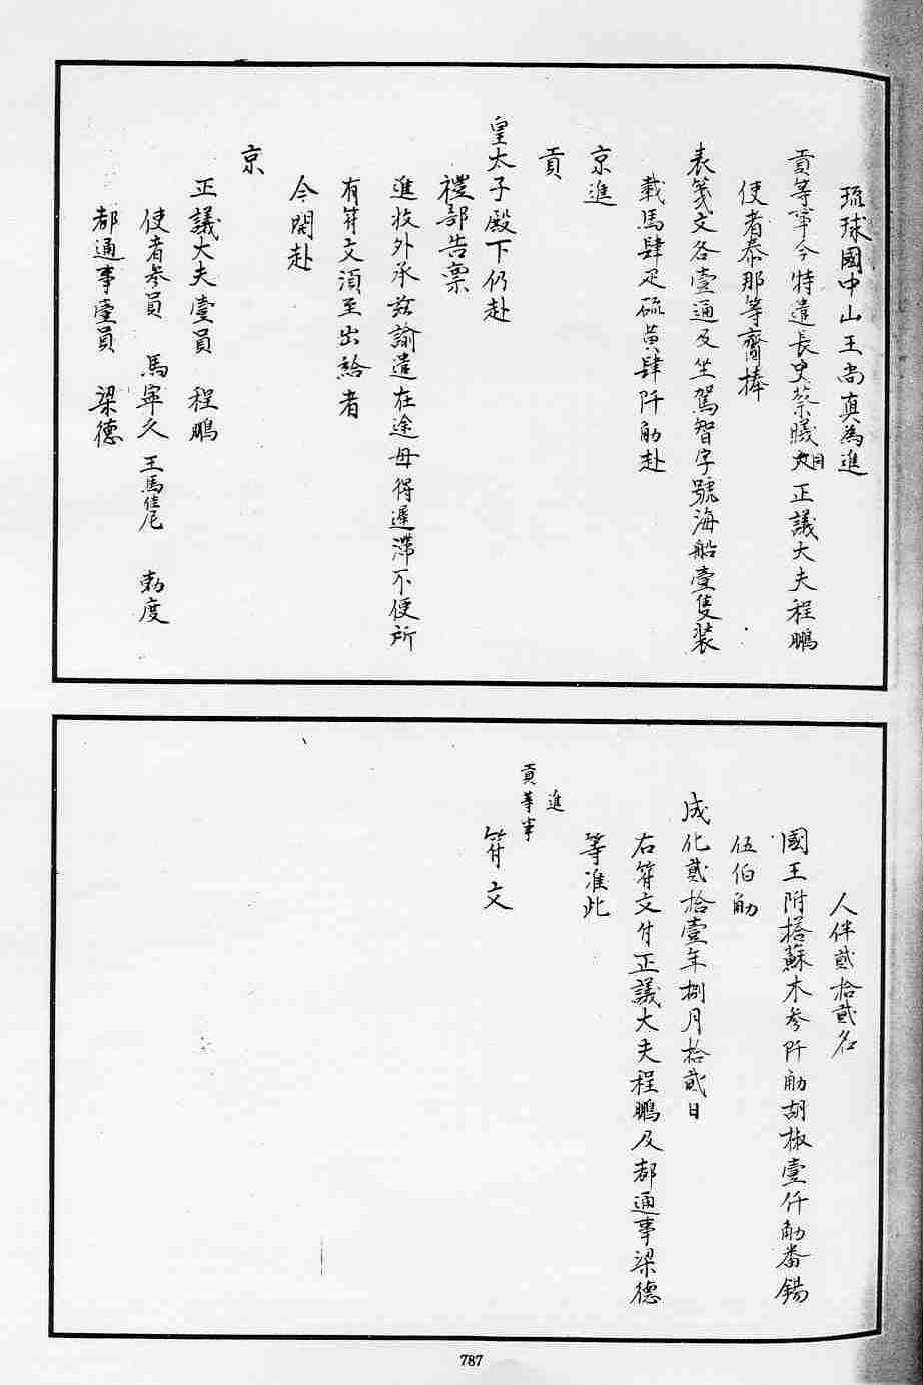 琉球國中山王尚真為進
貢等事今特遣長史蔡曦 正議大夫程鵬
使者泰那等齎捧
表箋文各壹通及坐駕智字號海船壹隻裝
載馬肆疋硫黃肆阡觔赴
京進
貢
皇太子殿下仍赴
禮部告稟
進收外承玆諭遣在途毋得遲滯不便所
有符文須至出給者
今開赴
京
正議大夫壹員 程鵬
使者參員 馬寧久 王馬佳尼 勃度
都通事壹員 梁德
人伴貳拾貳名
國王附搭蘇木參阡觔胡椒壹仟觔番錫
伍伯觔
成化貳拾壹年捌月拾貳日
右符文付正議大夫程鵬及都通事梁德
等准此
進
貢等事
符文
787